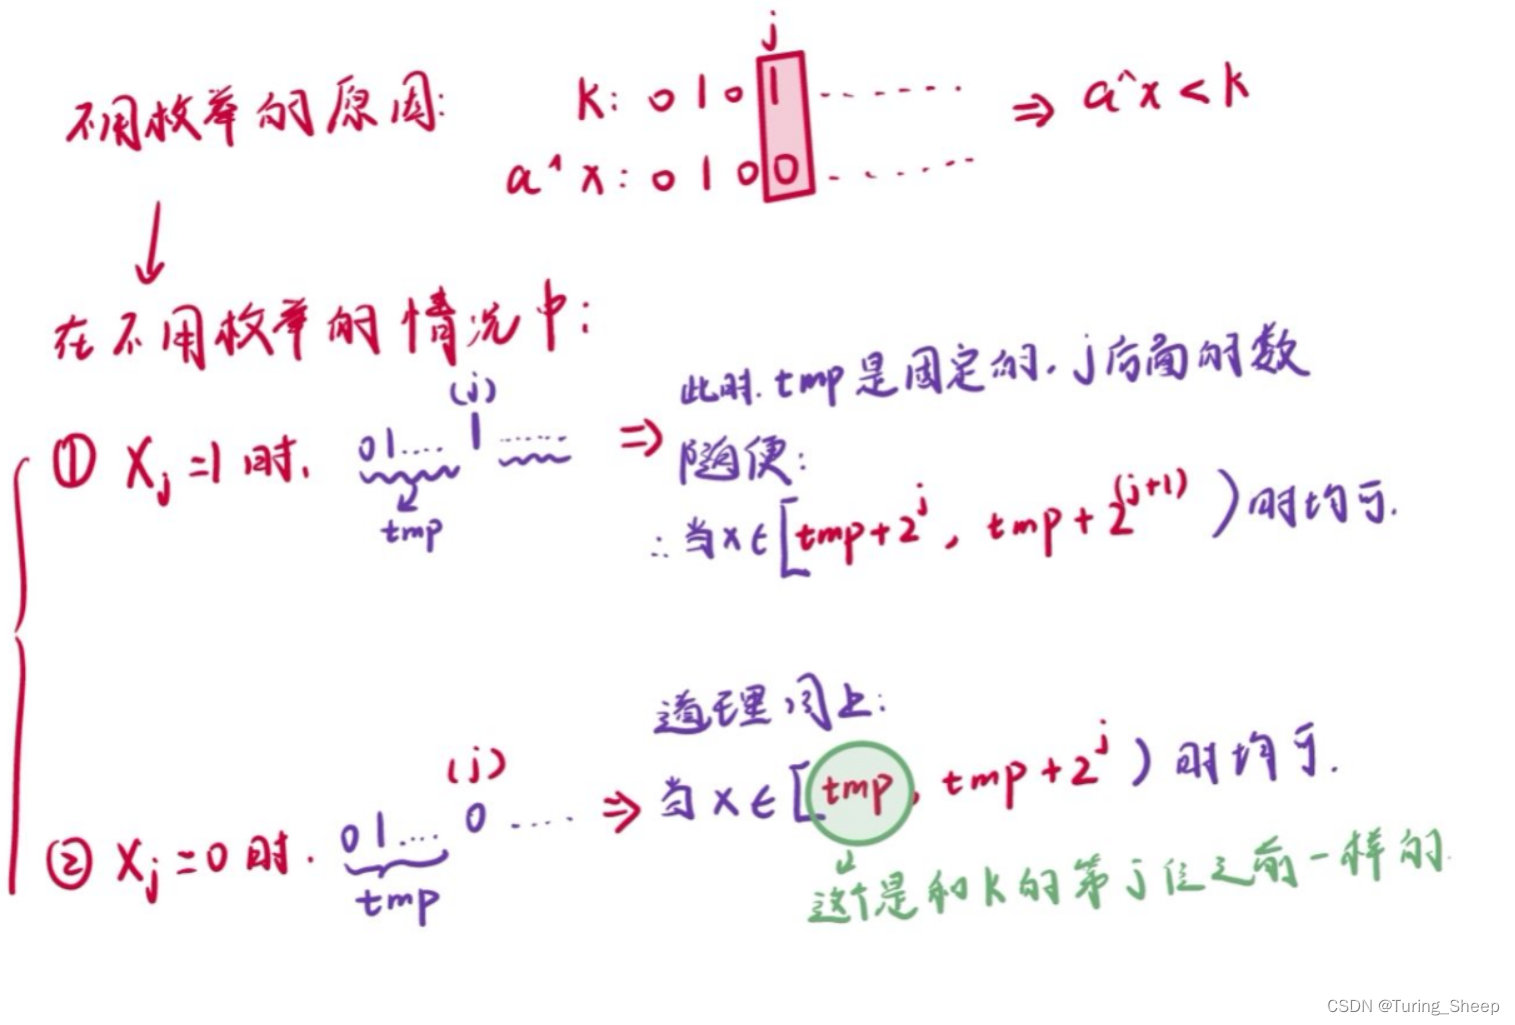 j
不用枚举的原因: k: 0 1 0 1 ....... ⇒ a^x < k
a^x: 0 1 0 0 .......
↓
在不用枚举的情况中:
(j)
① Xj=1时, 01.... 1 ...... ⇒ 此时. tmp是固定的. j后面的数
随便:
tmp
∴当x∈[tmp+2^j, tmp+2^(j+1))时均可.
道理同上:
(j)
② Xj=0时. 01.... 0 .... ⇒ 当x∈[tmp, tmp+2^j)时均可.
tmp
这个是和k的第j位之前一样的.
CSDN @Turing_Sheep